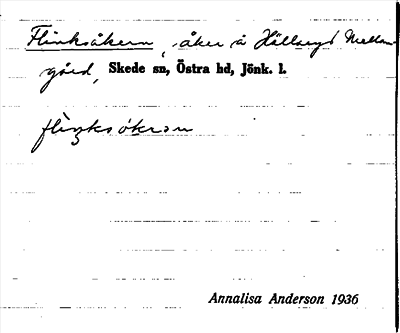 Flinksåkern, åker å Hällaryd Mellan-
gård, Skede sn, Östra hd, Jönk. l.
flìŋksåkɘrn
Annalisa Anderson 1936